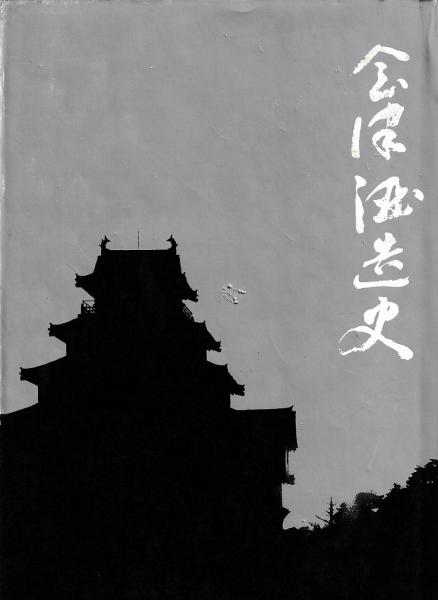 会津酒造史